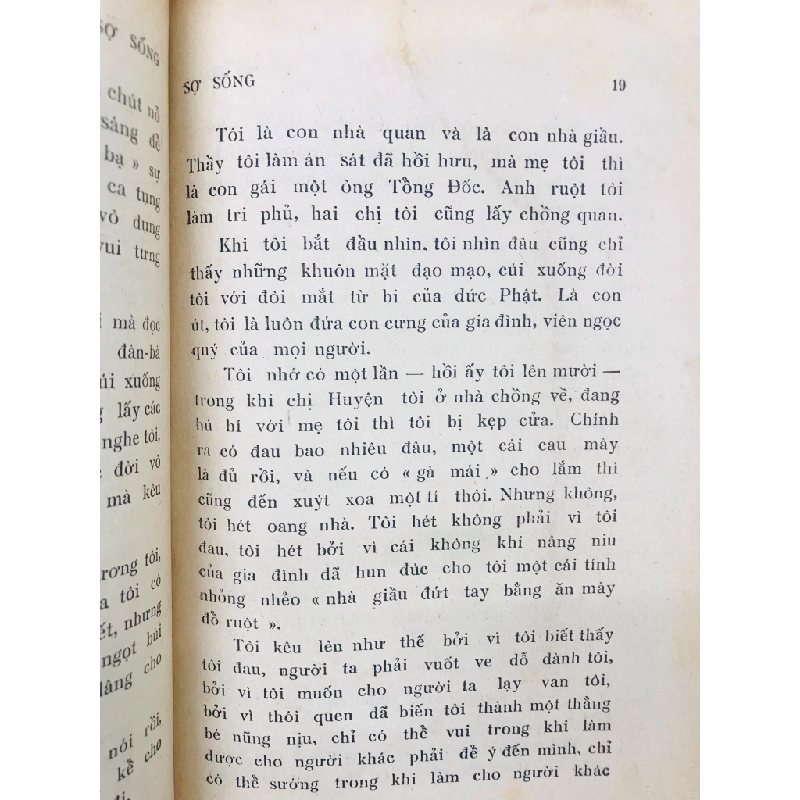 SỢ SỐNG
chút nỗ
sáng đề
bạ » sự
ca tung
vỏ dung
vui tưng
i mà đọc
đàn-bà
úi xuống
g lấy các
nghe tôi,
c đời vô
mà kêu
rơng tôi,
a tôi có
ết, nhưng
ngọt bùi
dâng cho
nói rồi,
kề cho
đi.
SỢ SỐNG 19
Tôi là con nhà quan và là con nhà giầu.
Thầy tôi làm án sát đã hồi hưu, mà mẹ tôi thì
là con gái một ông Tổng Đốc. Anh ruột tôi
làm tri phủ, hai chị tôi cũng lấy chồng quan.
Khi tôi bắt đầu nhìn. tôi nhìn đâu cũng chỉ
thấy những khuôn mặt đạo mạo, cúi xuống đời
tôi với đôi mắt từ bi của đức Phật. Là con
út, tôi là luôn đứa con cưng của gia đình, viên ngọc
quý của mọi người.
Tôi nhớ có một lần — hồi ấy tôi lên mười —
trong khi chị Huyện tôi ở nhà chồng về, đang
hú hí với mẹ tôi thì tôi bị kẹp cửa. Chính
ra có đau bao nhiêu đâu, một cái cau mày
là đủ rồi, và nếu có « gà mái » cho lắm thì
cũng đến xuýt xoa một tí thôi. Nhưng không,
tôi hét oang nhà. Tôi hét không phải vì tôi
đau, tôi hét bởi vì cái không khí nâng niu
của gia đình đã hun đúc cho tôi một cái tính
nhỏng nhẻo « nhà giầu đứt tay bằng ăn mày
đổ ruột ».
Tôi kêu lên như thế bởi vì tôi biết thấy
tôi đau, người ta phải vuốt ve dỗ dành tôi,
bởi vì tôi muốn cho người ta lạy van tôi,
bởi vì thói quen đã biến tôi thành một thằng
bé nũng nịu, chỉ có thể vui trong khi làm
được cho người khác phải để ý đến mình, chỉ
có thể sướng trong khi làm cho người khác